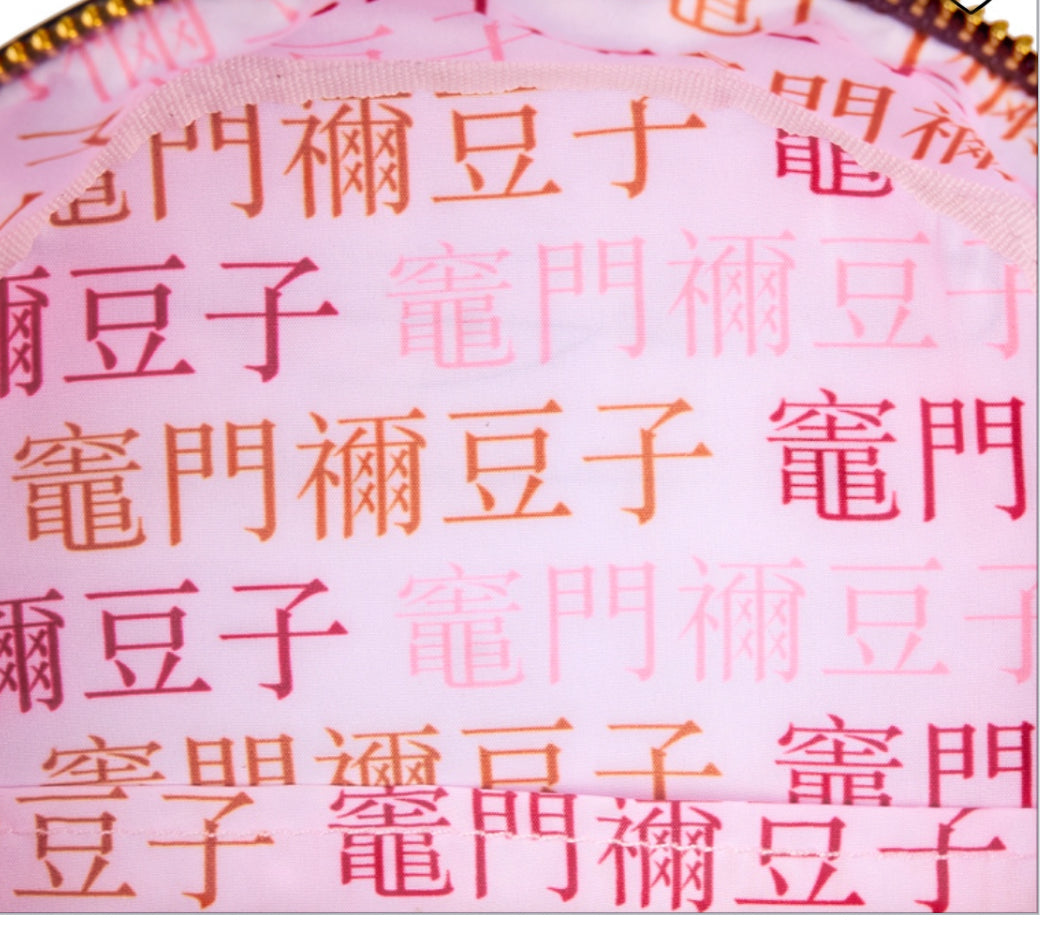 竈門禰豆子 竈門禰
禰豆子 竈門禰豆子
竈門禰豆子 竈門
禰豆子 竈門禰豆子
竈門禰豆子 竈門
豆子 竈門禰豆子